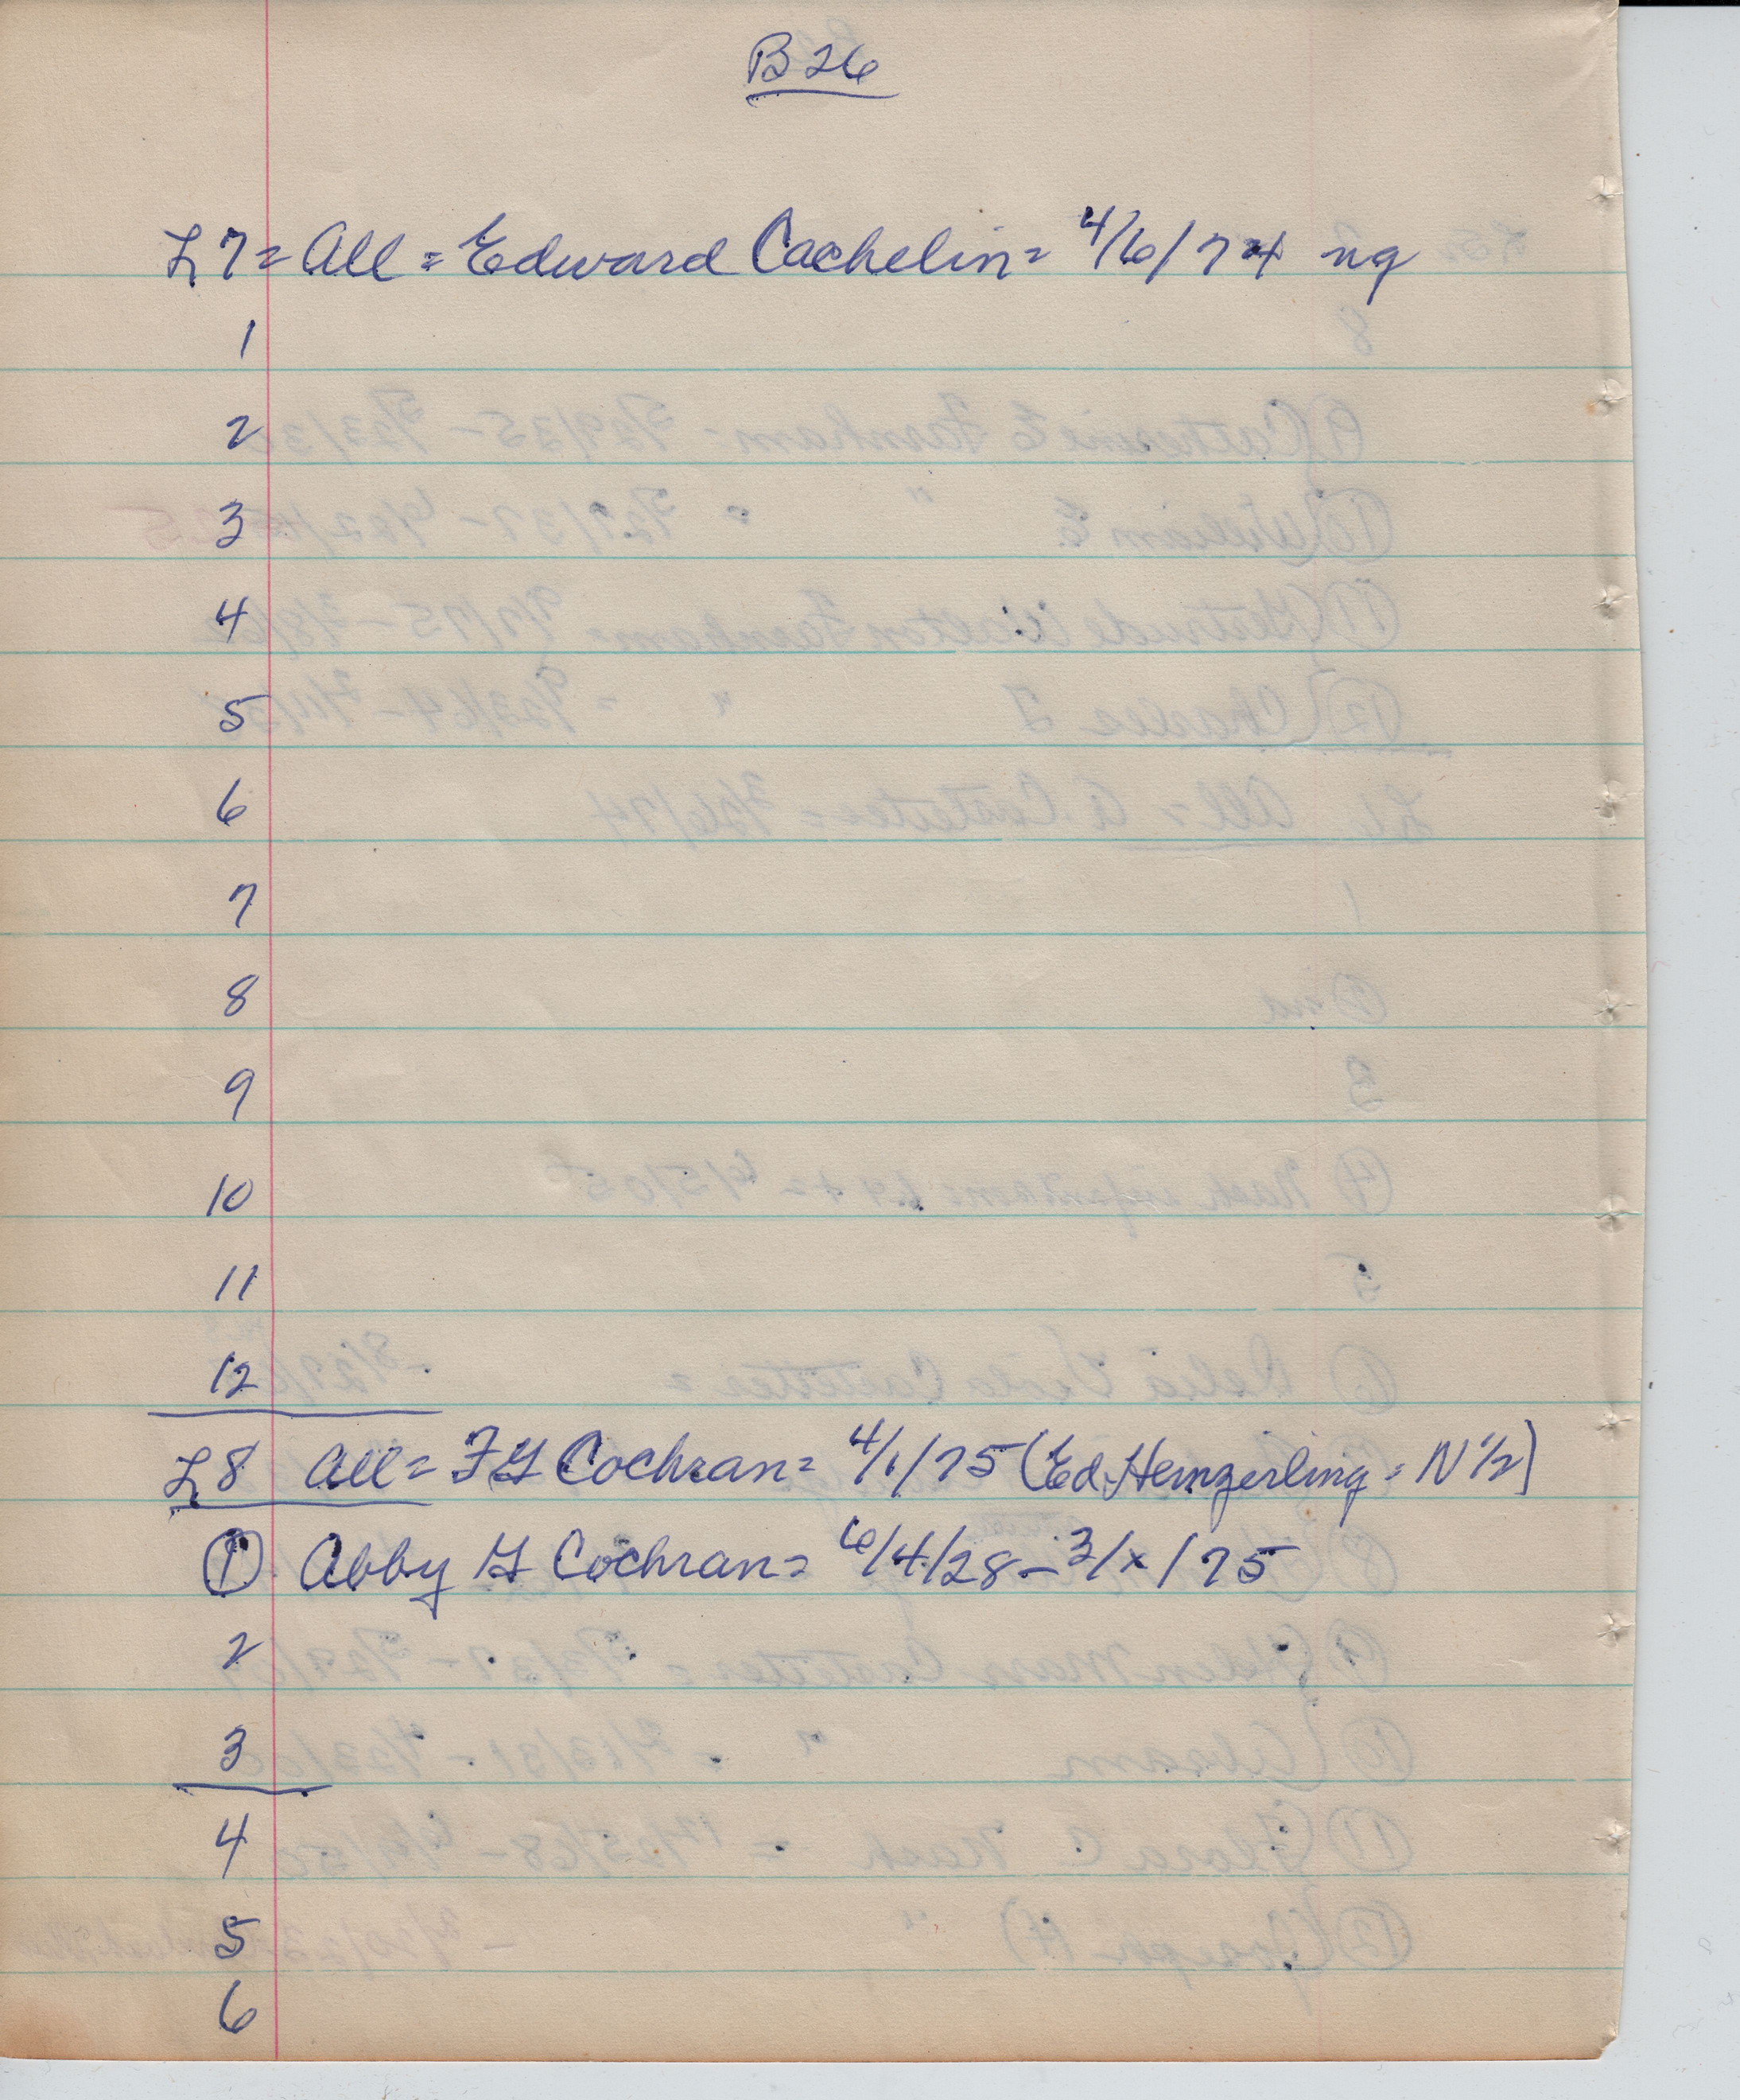 B26
L7= All = Edward Cachelin= 4/6/74 ng
1
2
3
4
5
6
7
8
9
10
11
12
L8 All= F G Cochran= 4/1/75 (Ed Hemzerling = N 1/2)
① Abby G Cochran= 6/4/28 - 3/x/75
2
3
4
5
6